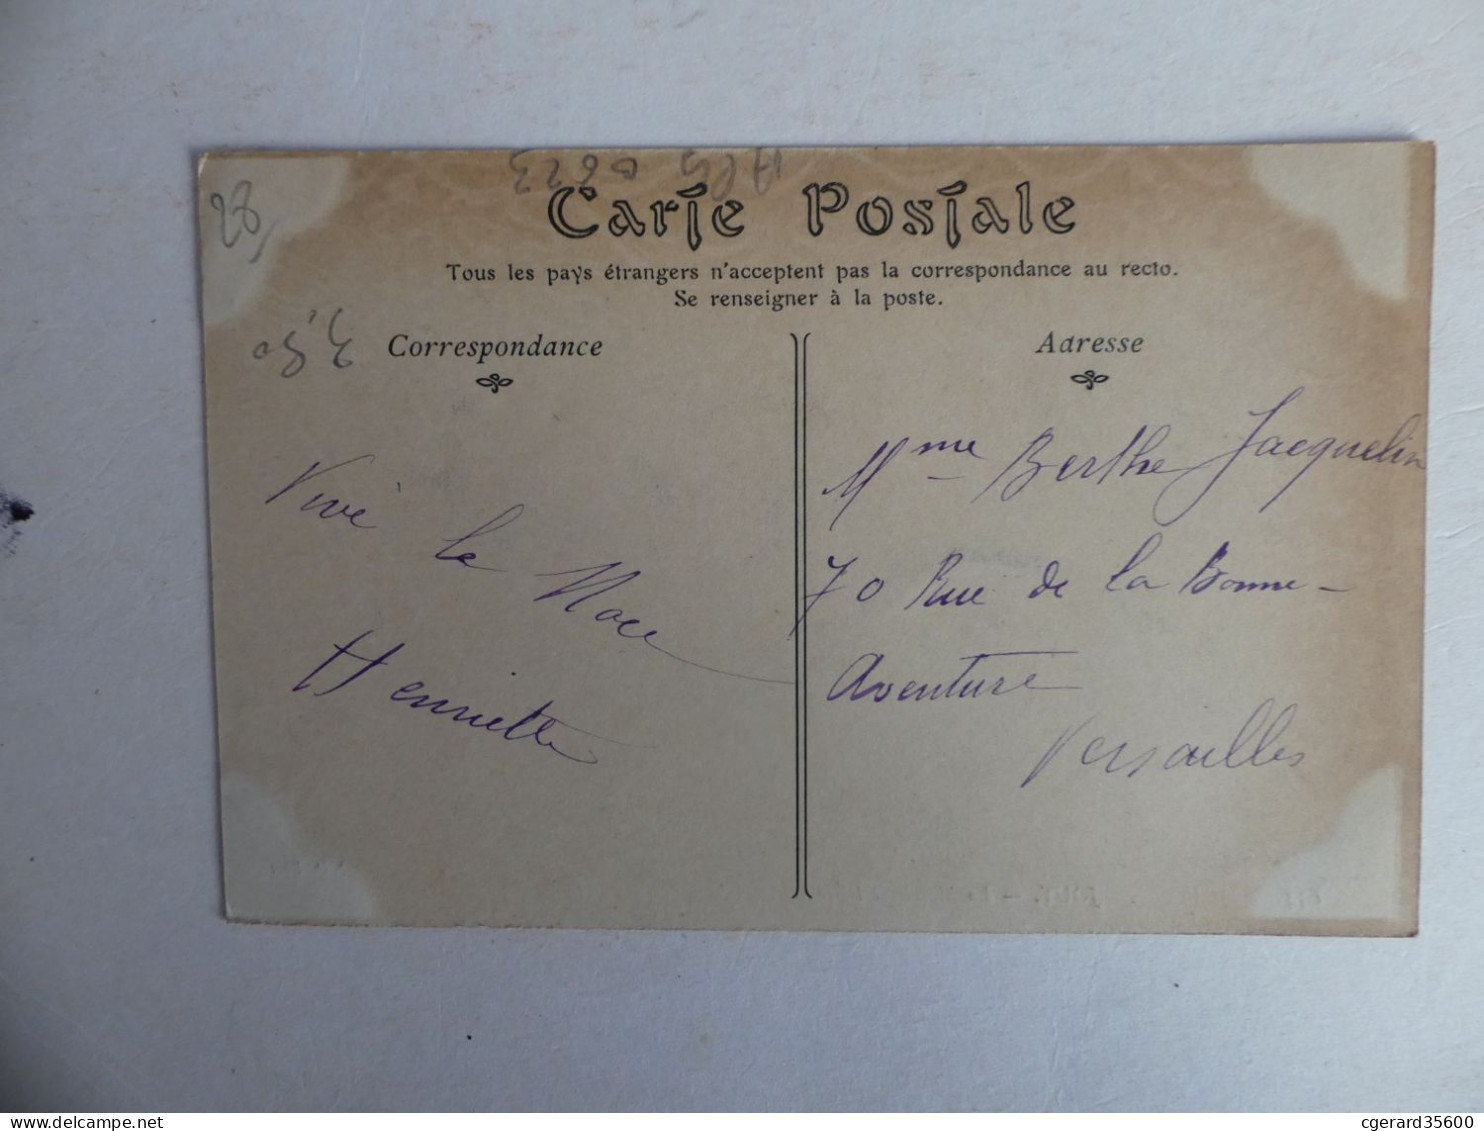 28
Carte Postale
Tous les pays étrangers n'acceptent pas la correspondance au recto.
Se renseigner à la poste.
3,50
Correspondance
Vive la Noce
Henriette
Adresse
Mme Berthe Jacquelin
70 Rue de la Bonne-
Aventure
Versailles
delcampe.net
cgerard35600